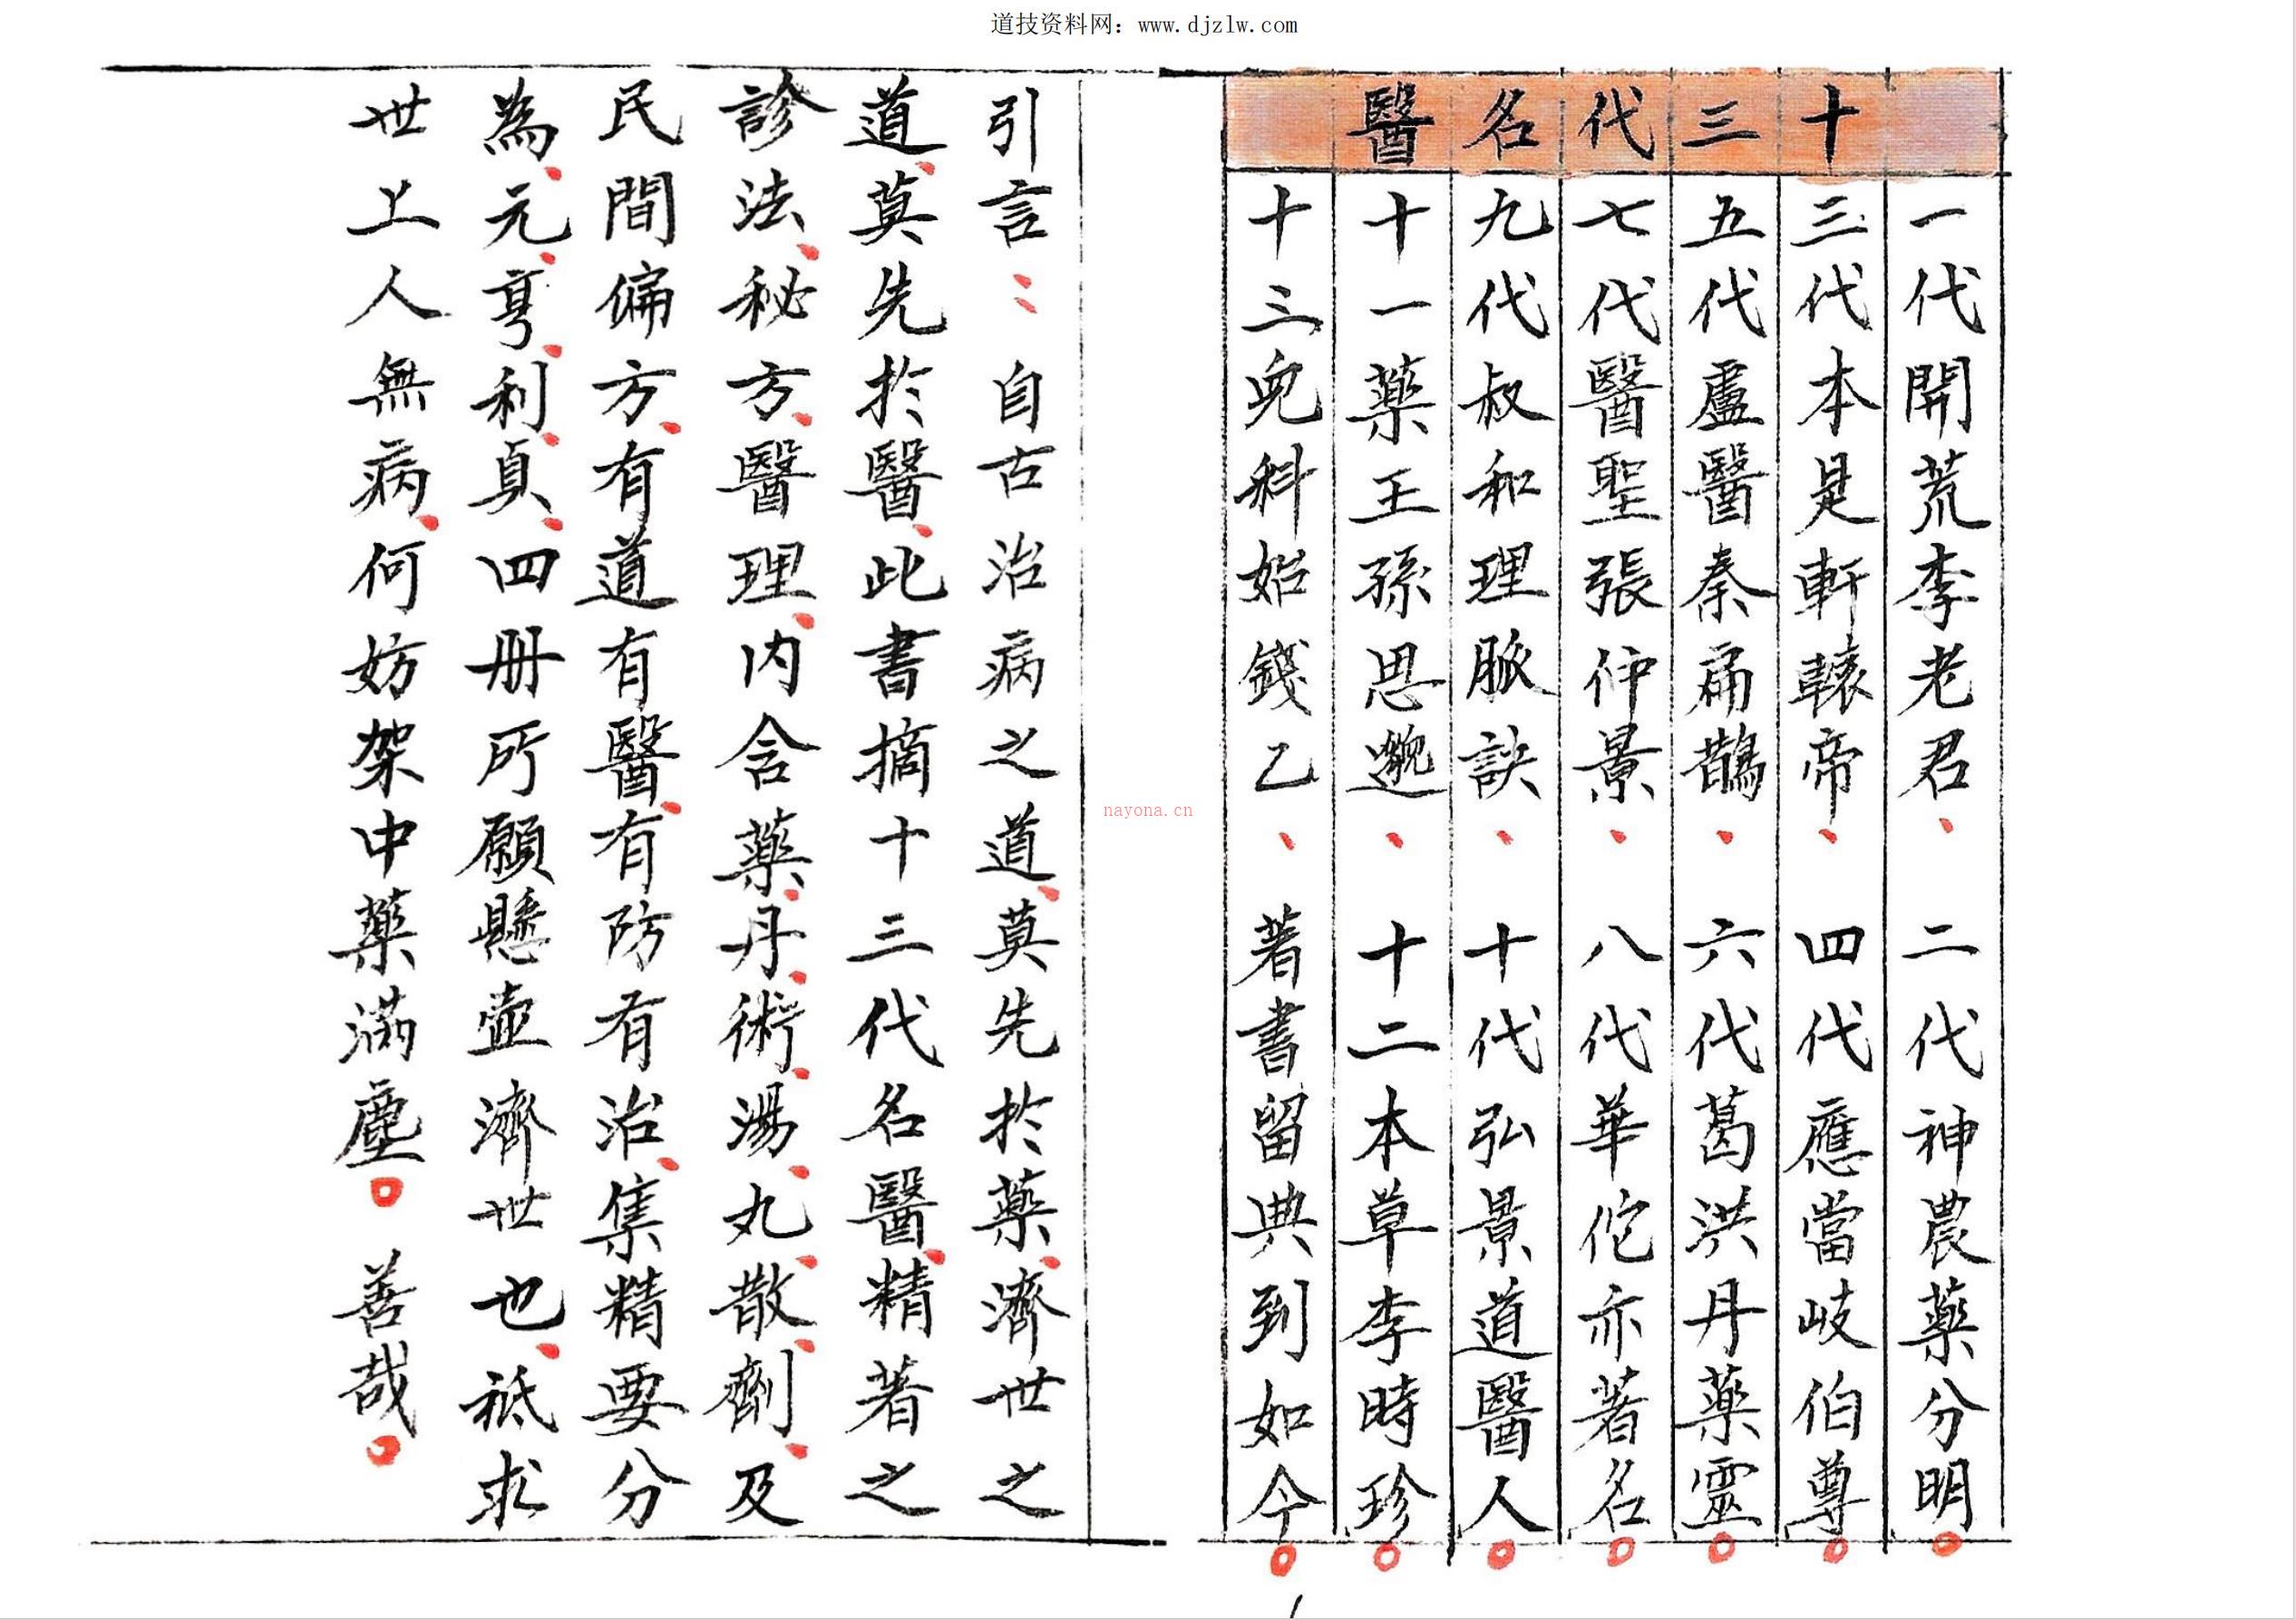 道技资料网：www.djzlw.com
十三代名醫
一代開荒李老君、二代神農藥分明。
三代本是軒轅帝、四代應當岐伯尊。
五代盧醫秦扁鵲、六代葛洪丹藥靈。
七代醫聖張仲景、八代華佗亦著名。
九代叔和理脈訣、十代弘景道醫人。
十一藥王孫思邈、十二本草李時珍。
十三兒科始錢乙、著書留典到如今。
nayona.cn
引言：自古治病之道、莫先於藥、濟世之
道、莫先於醫、此書摘十三代名醫、精著之
診法、秘方、醫理、内含藥、丹、術、湯、丸、散、劑、及
民間偏方、有道有醫、有防有治、集精要分
為、元、亨、利、貞、四册所願懸壺濟世也、祇求
世上人無病、何妨架中藥滿塵。善哉。